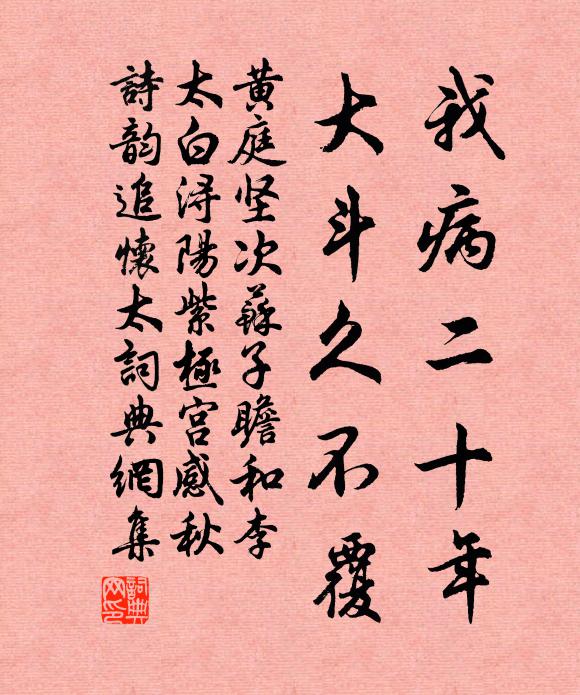 我病二十年
大斗久不覆
黄庭坚次蘇子瞻和李
太白浔陽紫極宫感秋
詩韵追懷太詞典網集
詞典網印